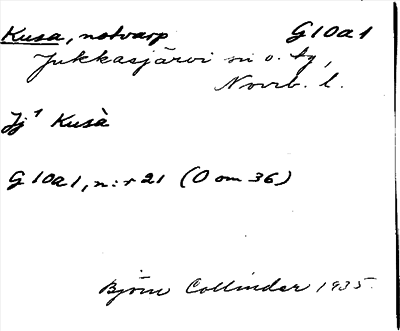 Kusa, notvarp G10a1
Jukkasjärvi sn o. tg,
Norrb. l.
Jj¹ Kusà
G 10a1, n:r 21 (O om 36)
Björn Collinder 1935.